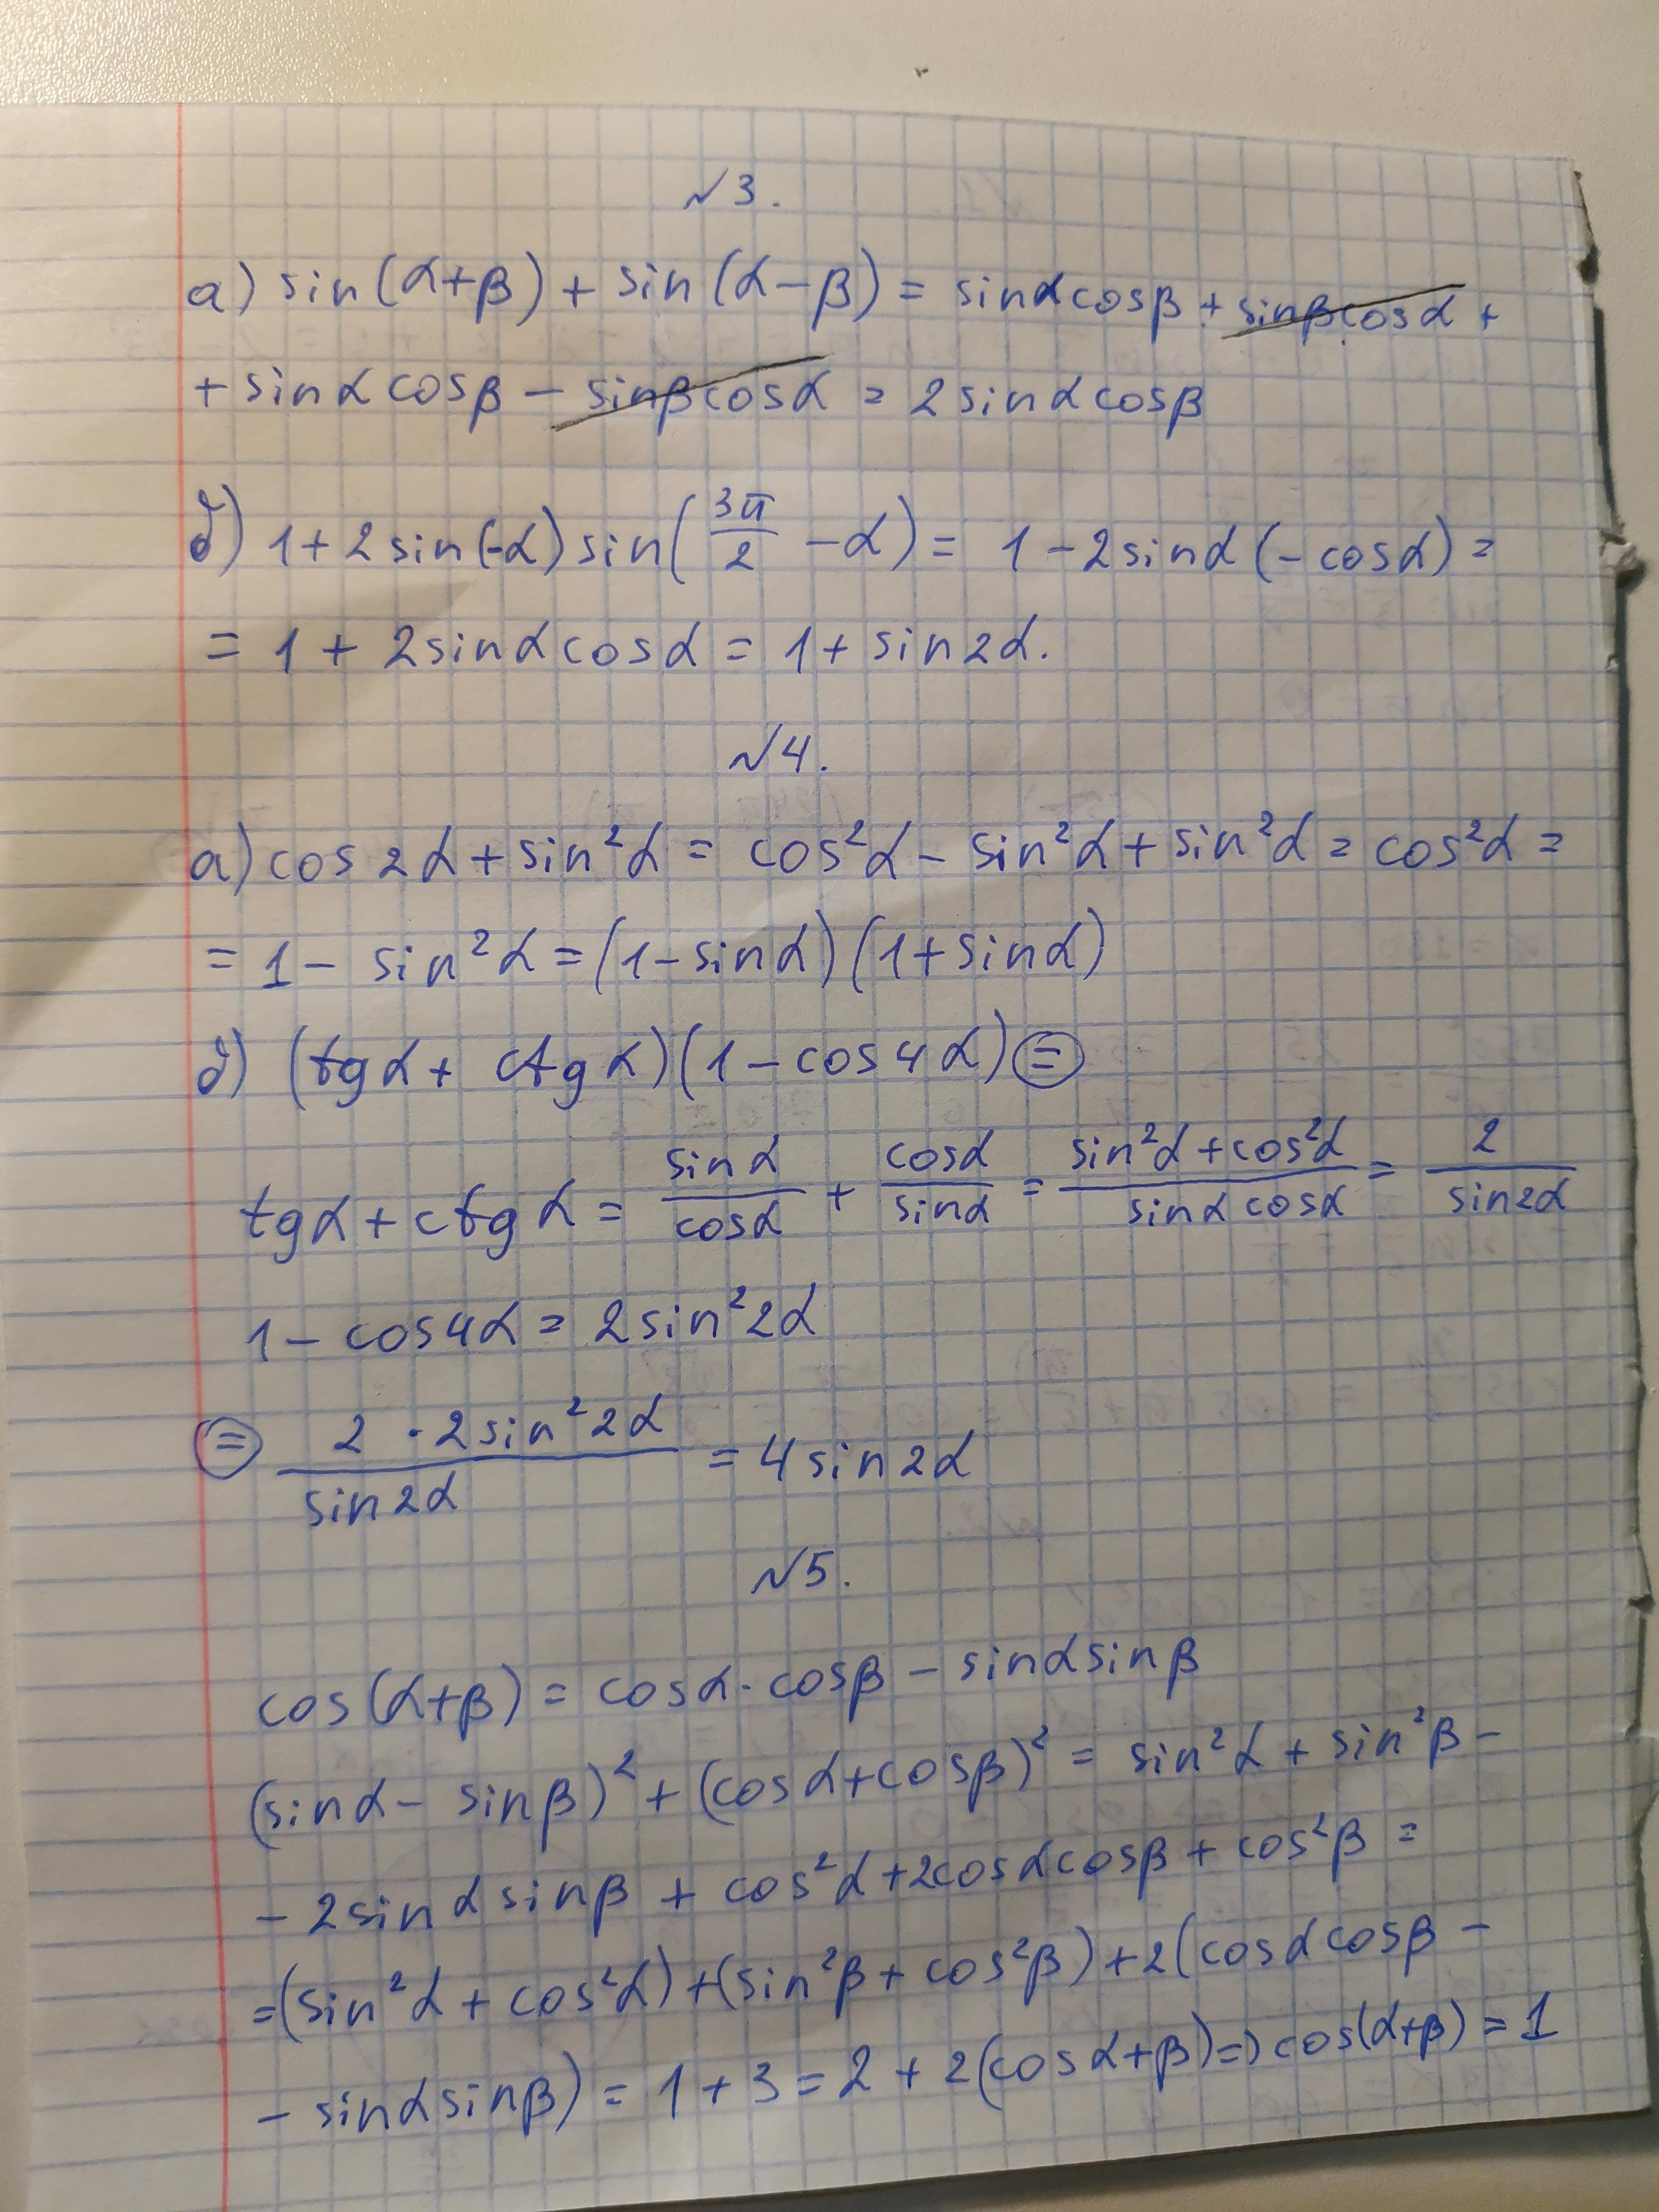 №3.
а) sin(α+β) + sin(α−β) = sinα cosβ + sinβ cosα +
+ sinα cosβ − sinβ cosα = 2 sinα cosβ
б) 1 + 2 sin(-α) sin(3π/2 − α) = 1 − 2 sinα (− cosα) =
= 1 + 2 sinα cosα = 1 + sin 2α.
№4.
а) cos 2α + sin²α = cos²α − sin²α + sin²α = cos²α =
= 1 − sin²α = (1 − sinα)(1 + sinα)
б) (tgα + ctgα)(1 − cos4α) =
tgα + ctgα = sinα/cosα + cosα/sinα = (sin²α + cos²α)/(sinα cosα) = 2/sin2α
1 − cos4α = 2 sin²2α
= (2 · 2 sin²2α)/(sin2α) = 4 sin 2α
№5.
cos(α+β) = cosα · cosβ − sinα sinβ
(sinα − sinβ)² + (cosα + cosβ)² = sin²α + sin²β −
− 2 sinα sinβ + cos²α + 2cosα cosβ + cos²β =
= (sin²α + cos²α) + (sin²β + cos²β) + 2(cosα cosβ −
− sinα sinβ) = 1 + 3 = 2 + 2(cosα+β) => cos(α+β) = 1